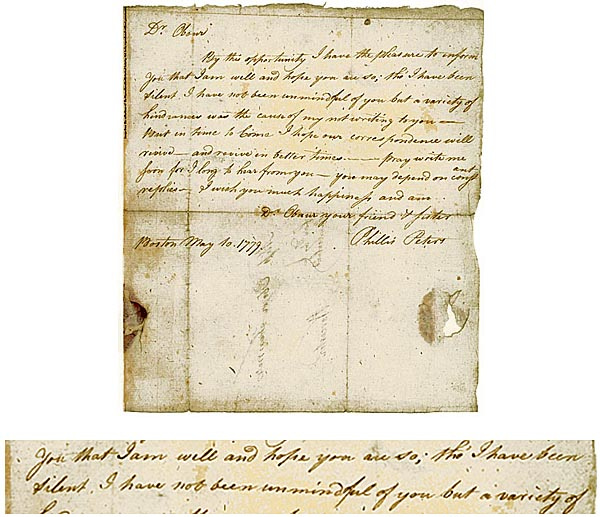 Dr. Obour
By this opportunity I have the pleasure to inform
you that I am well and hope you are so; tho' I have been
silent, I have not been unmindful of you but a variety of
hindrances was the cause of my not writing to you —
But in time to Come I hope our correspondence will
revive — and revive in better times — pray write me
soon for I long to hear from you — you may depend on constant
replies — I wish you much happiness and am
Dr. Obour your friend & sister
Phillis Peters
Boston May 10. 1779.
you that I am well and hope you are so; tho' I have been
silent, I have not been unmindful of you but a variety of